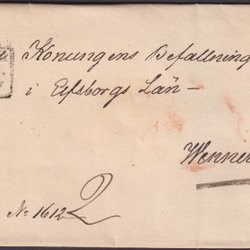 Konungens Befallning
i Elfsborgs Län –
Wenner
No 1612
2